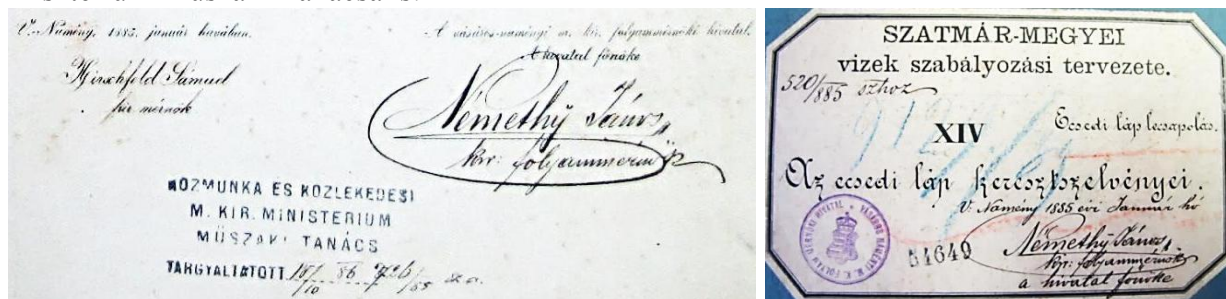 V. Namény, 1885. január havában.
A vásáros-naményi m. kir. folyammérnöki hivatal.
A hivatal főnöke
Hirschfeld Sámuel
kir mérnök
Némethÿ János
kir: folyammérnök
KÖZMUNKA ÉS KÖZLEKEDÉSI
M. KIR. MINISTERIUM
MŰSZAKI TANÁCS
TÁRGYALTATOTT 18/10 86
SZATMÁR-MEGYEI
vizek szabályozási tervezete.
520/885 szhoz
XIV
Ecsedi láp lecsapolás.
Az ecsedi láp keresztszelvényei.
V. Namény 1885 évi Január hó
51649
Némethÿ János
kir: folyammérnök
a hivatal főnöke